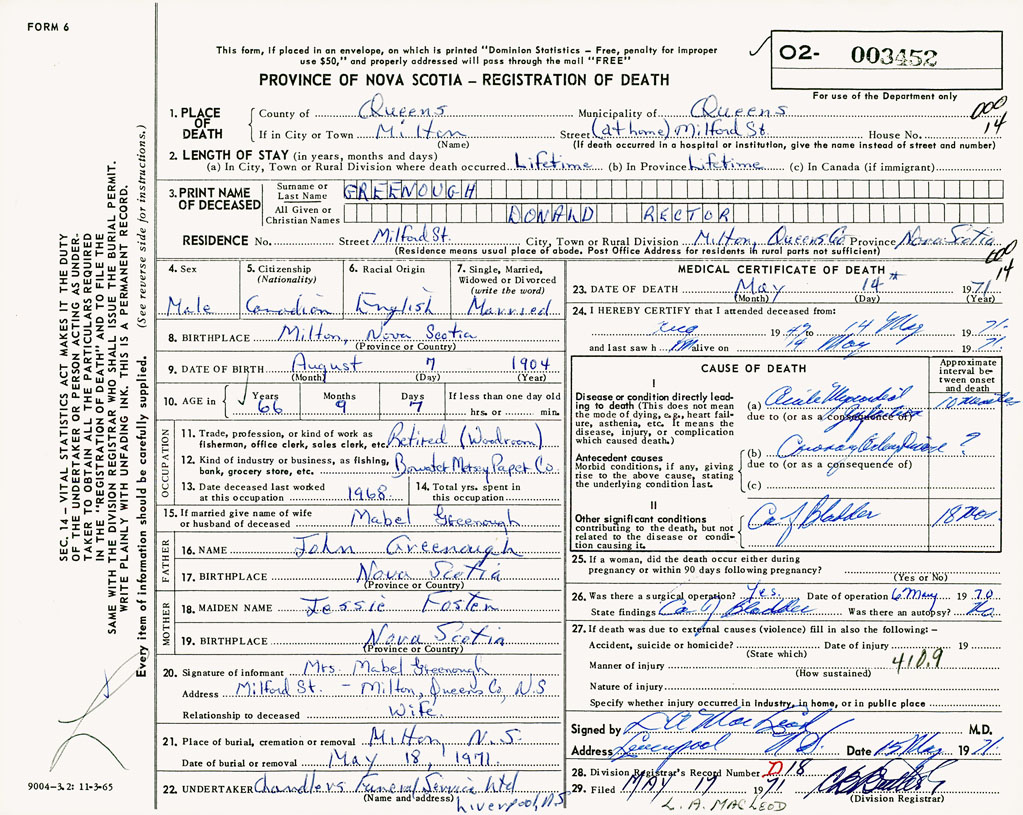 FORM 6
This form, if placed in an envelope, on which is printed "Dominion Statistics – Free, penalty for improper
use $50," and properly addressed will pass through the mail "FREE"
PROVINCE OF NOVA SCOTIA – REGISTRATION OF DEATH
O2- 003452
For use of the Department only
000
14
1. PLACE OF DEATH
County of Queens Municipality of Queens
If in City or Town Milton Street (at home) Milford St. House No.
(Name) (If death occurred in a hospital or institution, give the name instead of street and number)
2. LENGTH OF STAY (in years, months and days)
(a) In City, Town or Rural Division where death occurred Lifetime (b) In Province Lifetime (c) In Canada (if immigrant)
3. PRINT NAME OF DECEASED
Surname or Last Name GREENOUGH
All Given or Christian Names DONALD RECTOR
RESIDENCE No. Street Milford St. City, Town or Rural Division Milton, Queens Co Province Nova Scotia
(Residence means usual place of abode. Post Office Address for residents in rural parts not sufficient)
000
14
4. Sex Male
5. Citizenship (Nationality) Canadian
6. Racial Origin English
7. Single, Married, Widowed or Divorced (write the word) Married
8. BIRTHPLACE Milton, Nova Scotia
(Province or Country)
9. DATE OF BIRTH August 7 1904
(Month) (Day) (Year)
10. AGE in Years 66 Months 9 Days 7 If less than one day old hrs. or min.
OCCUPATION
11. Trade, profession, or kind of work as fisherman, office clerk, sales clerk, etc. Retired (Woodroom)
12. Kind of industry or business, as fishing, bank, grocery store, etc. Bowater Mersey Paper Co.
13. Date deceased last worked at this occupation 1968
14. Total yrs. spent in this occupation
15. If married give name of wife or husband of deceased Mabel Greenough
FATHER
16. NAME John Greenough
17. BIRTHPLACE Nova Scotia
(Province or Country)
MOTHER
18. MAIDEN NAME Jessie Foster
19. BIRTHPLACE Nova Scotia
(Province or Country)
20. Signature of informant Mrs. Mabel Greenough
Address Milford St. – Milton, Queens Co, N.S
Relationship to deceased Wife
21. Place of burial, cremation or removal Milton, N.S.
Date of burial or removal May 18, 1971
22. UNDERTAKER Chandlers Funeral Service Ltd
(Name and address) Liverpool, N.S
MEDICAL CERTIFICATE OF DEATH
23. DATE OF DEATH May 14 1971
(Month) (Day) (Year)
24. I HEREBY CERTIFY that I attended deceased from:
Aug 1949 to 14 May 1971
and last saw him alive on 14 May 1971
CAUSE OF DEATH
Approximate interval between onset and death
I
Disease or condition directly leading to death (This does not mean the mode of dying, e.g., heart failure, asthenia, etc. It means the disease, injury, or complication which caused death.)
(a) Acute Myocardial 10 minutes
due to (or as a consequence of)
Antecedent causes
Morbid conditions, if any, giving rise to the above cause, stating the underlying condition last.
(b) Coronary Artery Disease ?
due to (or as a consequence of)
(c)
II
Other significant conditions contributing to the death, but not related to the disease or condition causing it.
Ca of Bladder 18 mos.
25. If a woman, did the death occur either during
pregnancy or within 90 days following pregnancy?
(Yes or No)
26. Was there a surgical operation? Yes. Date of operation 6 May 1970
State findings Ca of Bladder Was there an autopsy? No
27. If death was due to external causes (violence) fill in also the following:–
Accident, suicide or homicide? Date of injury 19
(State which)
Manner of injury 410.9
(How sustained)
Nature of injury
Specify whether injury occurred in industry, in home, or in public place
Signed by L A MacLeod M.D.
Address Liverpool N.S. Date 15 May 1971
28. Division Registrar's Record Number D 18
29. Filed MAY 17 1971
(Division Registrar)
L. A. MACLEOD
SEC. 14 – VITAL STATISTICS ACT MAKES IT THE DUTY
OF THE UNDERTAKER OR PERSON ACTING AS UNDER-
TAKER TO OBTAIN ALL THE PARTICULARS REQUIRED
IN THE "REGISTRATION OF DEATH" AND TO FILE THE
SAME WITH THE DIVISION REGISTRAR WHO SHALL ISSUE THE BURIAL PERMIT.
WRITE PLAINLY WITH UNFADING INK. THIS IS A PERMANENT RECORD.
Every item of information should be carefully supplied. (See reverse side for instructions.)
9004–3.2: 11-3-65